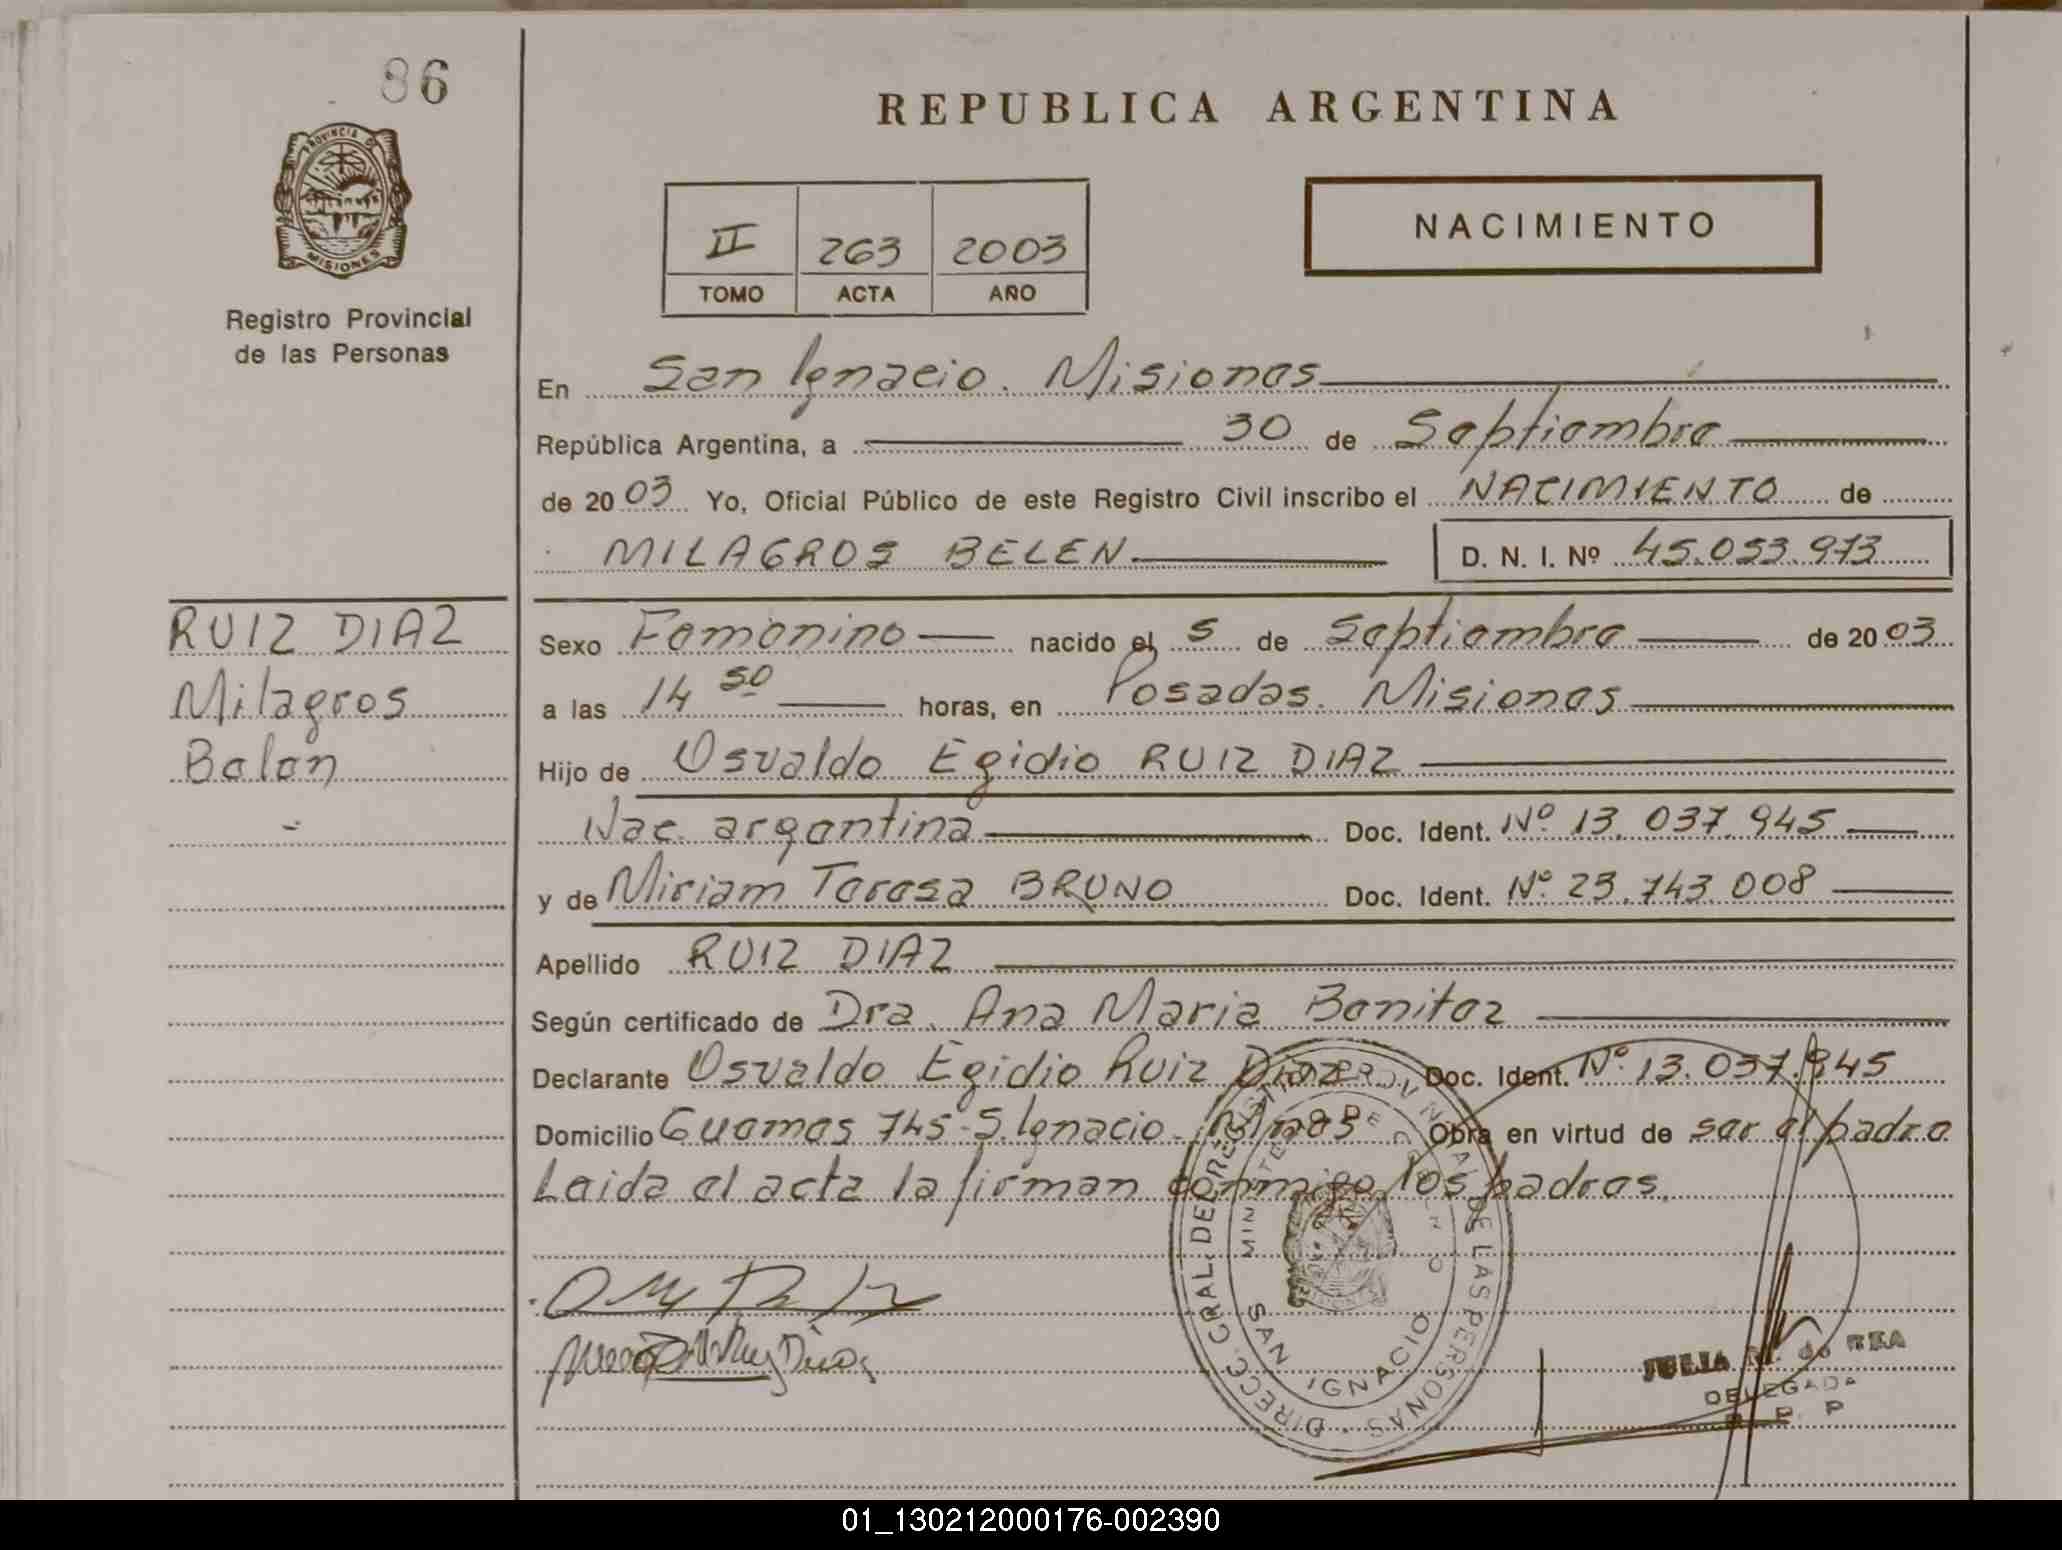 86
PROVINCIA DE
MISIONES
Registro Provincial
de las Personas
REPUBLICA ARGENTINA
II 263 2003
TOMO ACTA AÑO
NACIMIENTO
En San Ignacio. Misiones
República Argentina, a 30 de Septiembre
de 2003 Yo, Oficial Público de este Registro Civil inscribo el NACIMIENTO de
MILAGROS BELEN D. N. I. Nº 45.053.973
RUIZ DIAZ
Milagros
Belen
Sexo Femenino nacido el 5 de Septiembre de 2003
a las 14 50 horas, en Posadas. Misiones
Hijo de Osvaldo Egidio RUIZ DIAZ
Nac. argentina Doc. Ident. Nº 13.037.945
y de Miriam Teresa BRUNO Doc. Ident. Nº 23.743.008
Apellido RUIZ DIAZ
Según certificado de Dra. Ana Maria Benitez
Declarante Osvaldo Egidio Ruiz Diaz Doc. Ident. Nº 13.037.945
Domicilio Guemes 745-S.Ignacio-Mnes Obra en virtud de ser el padre
Leida el acta la firman conmigo los padres.
DIREC. GRAL. DEL REGISTRO PROVINCIAL DE LAS PERSONAS
MINISTERIO DE GOBIERNO
SAN IGNACIO
JULIA
DELEGADA
R. P. P
01_130212000176-002390